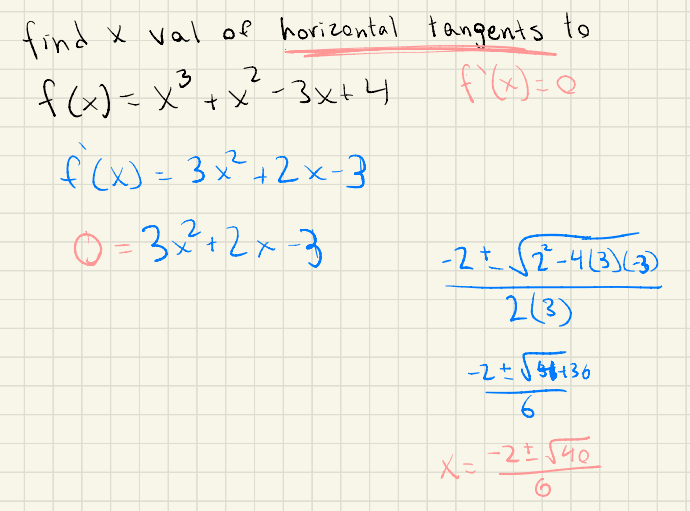 find x val of horizontal tangents to
f(x) = x³ + x² - 3x + 4
f'(x) = 0
f'(x) = 3x² + 2x - 3
0 = 3x² + 2x - 3
-2 ± √(2² - 4(3)(-3))
2(3)
-2 ± √(4+36)
6
x = -2 ± √40
6